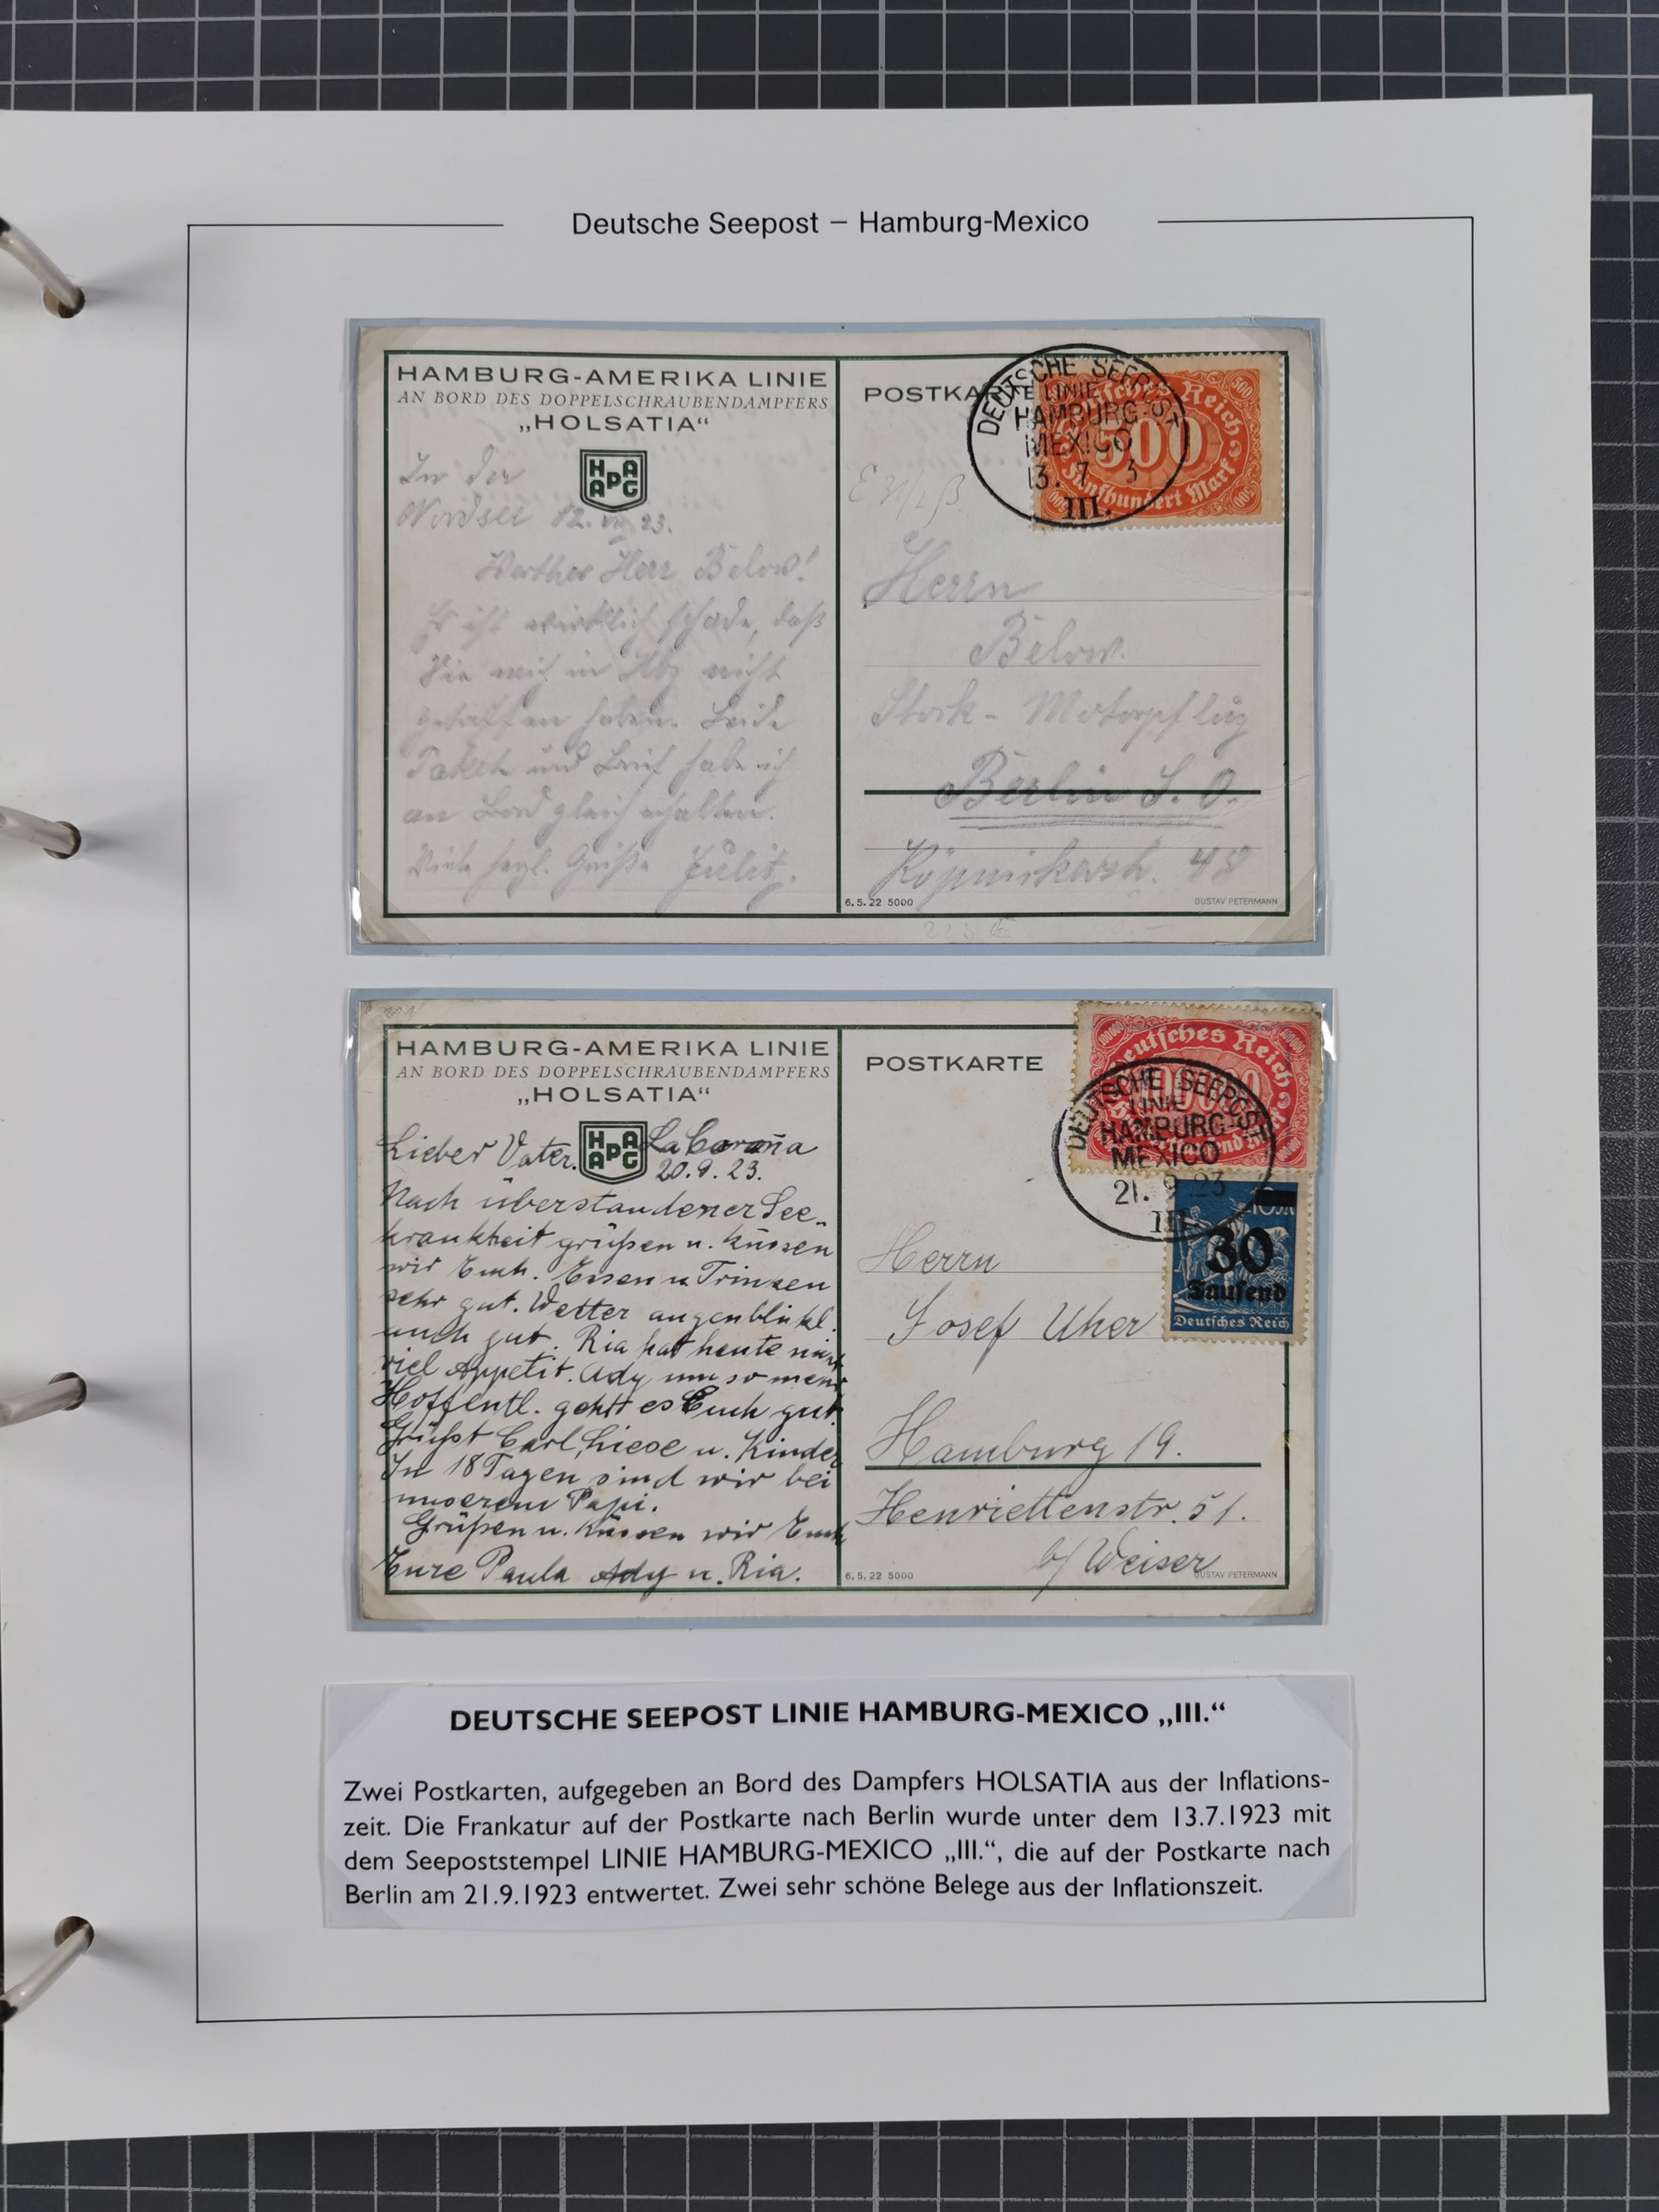 Deutsche Seepost – Hamburg-Mexico
HAMBURG-AMERIKA LINIE
AN BORD DES DOPPELSCHRAUBENDAMPFERS
„HOLSATIA“
HAPAG
In der
Nordsee 12. VII 23.
Werther Herr Below!
Es ist wirklich schade, daß
Sie mich in Hbg nicht
getroffen haben. Beide
Paket und Brief habe ich
an Bord gleich erhalten.
Viele herzl. Grüße
POSTKARTE
Deutsches Reich
500
Fünfhundert Mark
DEUTSCHE SEEPOST
LINIE
HAMBURG-
MEXICO
13. 7 3
III.
Herrn
Below.
Stock-Motorpflug
Berlin S. O.
Köpenickerstr. 48
6. 5. 22 5000
GUSTAV PETERMANN
HAMBURG-AMERIKA LINIE
AN BORD DES DOPPELSCHRAUBENDAMPFERS
„HOLSATIA“
HAPAG
Lieber Vater. La Coruña
20.9.23.
Nach überstandener See-
krankheit grüßen u. küssen
wir Euch. Essen u Trinken
sehr gut. Wetter augenblickl.
auch gut. Ria hat heute nicht
viel Appetit. Ady um so mehr
Hoffentl. geht es Euch gut.
Grüßt Carl, Liese u. Kinder
In 18 Tagen sind wir bei
unserem Papi.
Grüßen u. küssen wir Euch
Eure Paula Ady u. Ria.
POSTKARTE
Deutsches Reich
DEUTSCHE SEEPOST
LINIE
HAMBURG-
MEXICO
21. 9 23
III.
30
Tausend
Deutsches Reich
Herrn
Josef Uher
Hamburg 19.
Henriettenstr. 51.
b/ Weiser
6. 5. 22 5000
GUSTAV PETERMANN
DEUTSCHE SEEPOST LINIE HAMBURG-MEXICO „III.“
Zwei Postkarten, aufgegeben an Bord des Dampfers HOLSATIA aus der Inflations-
zeit. Die Frankatur auf der Postkarte nach Berlin wurde unter dem 13.7.1923 mit
dem Seepoststempel LINIE HAMBURG-MEXICO „III.“, die auf der Postkarte nach
Berlin am 21.9.1923 entwertet. Zwei sehr schöne Belege aus der Inflationszeit.